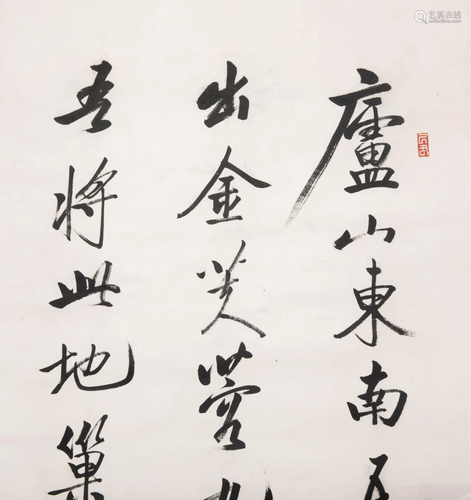 廬山東南五
出金芙蓉九
吾將此地巢